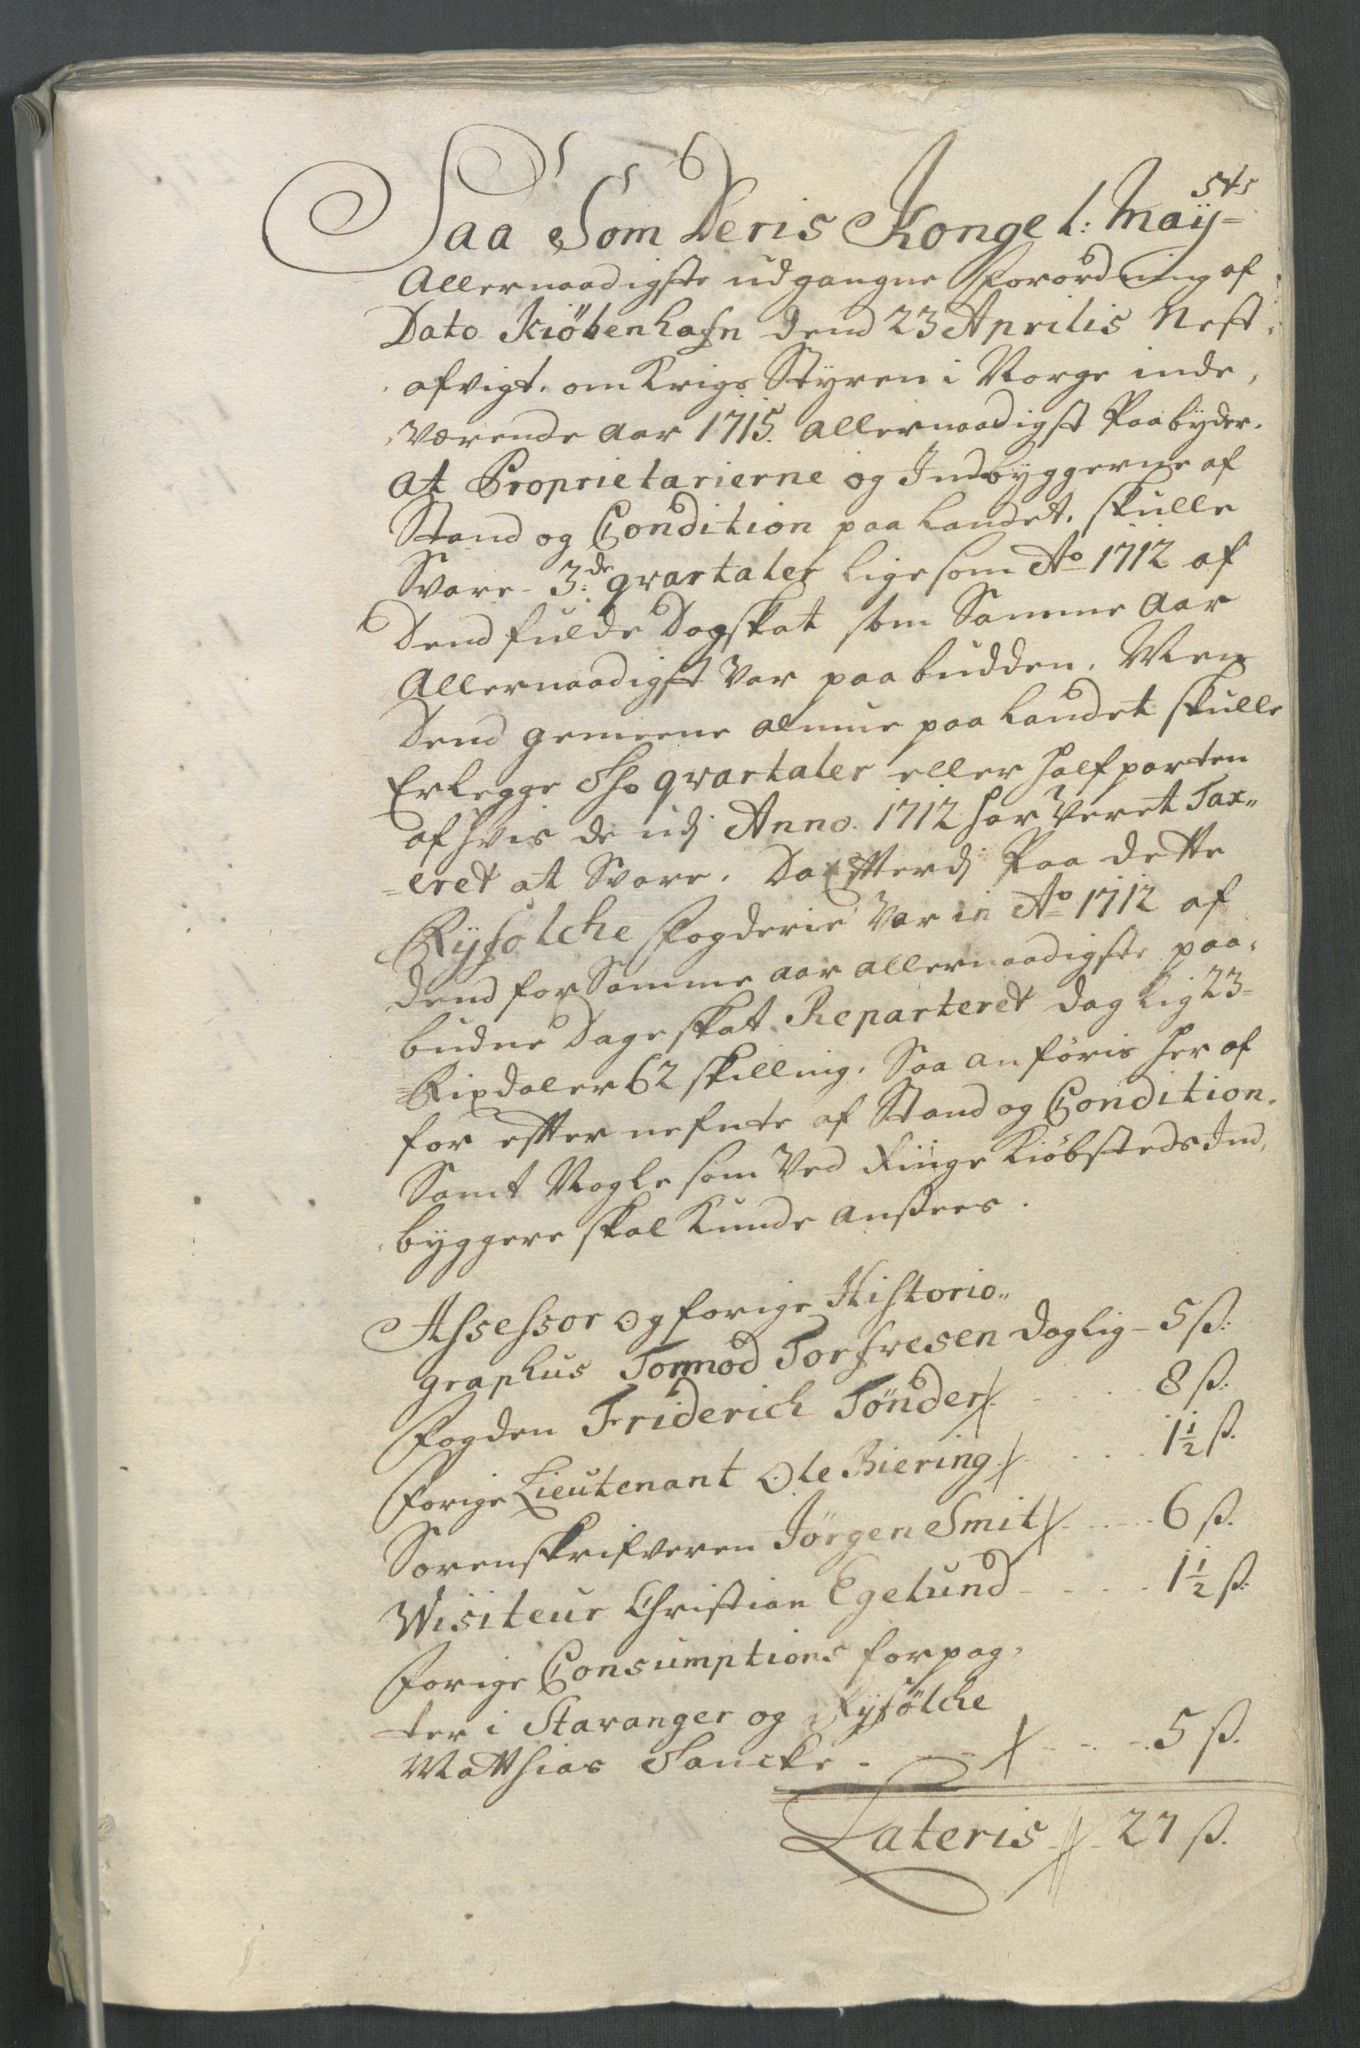 Saa Som Deris Kongel: Maÿ=sts
Allernaadigste udgangne forordning af
Dato Kiöbenhafn dend 23 Aprilis Nest-
afvigt. om Krigs Styren i Norge inde-
værende Aar 1715. allernaadigst Paabyder.
At Proprietarierne og Indbyggerne af
Stand og Condition paa Landet. skulle
Svare 3:de qvartaler ligesom Ao 1712 af
Dend fulde Dagskat som Samme Aar
Allernaadigst Var paabudden. Men
Dend gemeene almue paa Landet skulle
Erlegge Tho qvartaler eller halfparten
af hvis de udj Anno. 1712 har Veret Tax=
=eret at Svare. Da Efterdj Paa dette
Ryfölche fogderie Var in Ao 1712 af
dend for Samme aar allernaadigste paa-
budne Dage skat Reparteret daglig 23-
=Rixdaler 62 skilling. Saa anföris her af
for efternefnte af Stand og Condition.
Samt Nogle som Ved Ringe Kiöbsteds Ind-
byggere skal Kunde ansees.
Assessor og forige Historio=
graphus Tormöd Torfvesen daglig - 5 ß:
Fogden Friderich Tönder - 8 ß:
Forige Lieutenant Ole Biering - 1½ ß.
Sorenskrifveren Jörgen Smit - 6 ß.
Wisiteur Christian Egelund - 1½ ß:
Forige Consumptions forpag-
ter i Stavanger og Ryfölche
Matthias Sancke - 5 ß.
Lateris - 27 ß.